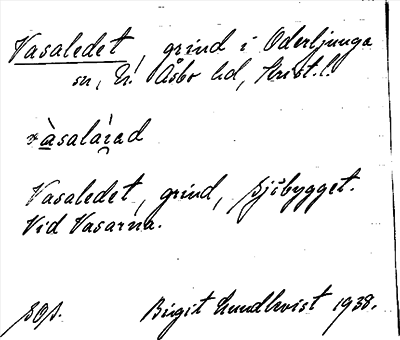 Vasaledet, grind i Oderljunga
sn, N. Åsbo hd, Krist.l.
vàsalàɩad
Vasaledet, grind, Sjöbygget.
Vid Vasarna.
Birgit Lundkvist 1938.